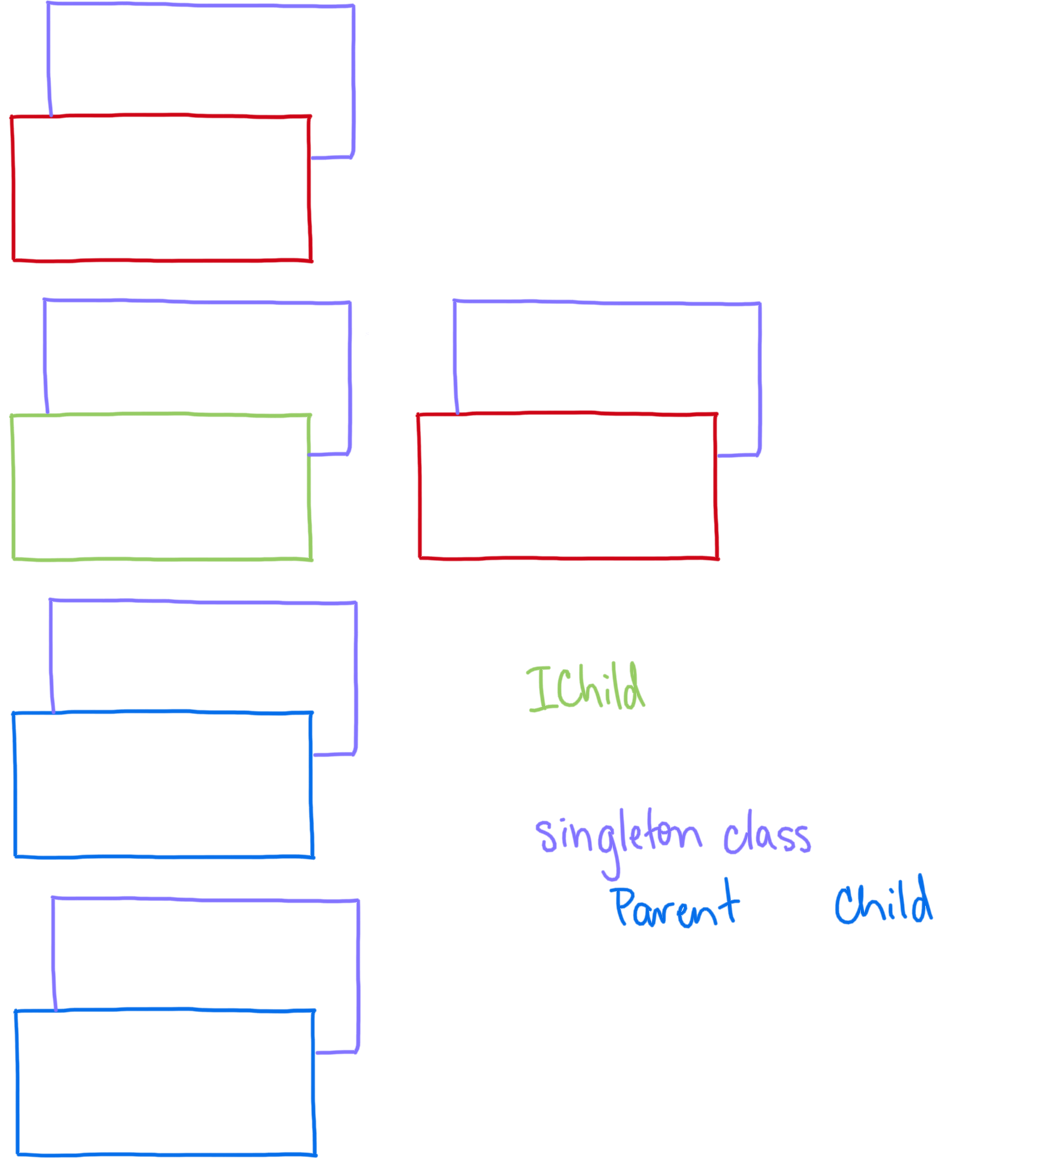 IChild
singleton class
Parent Child